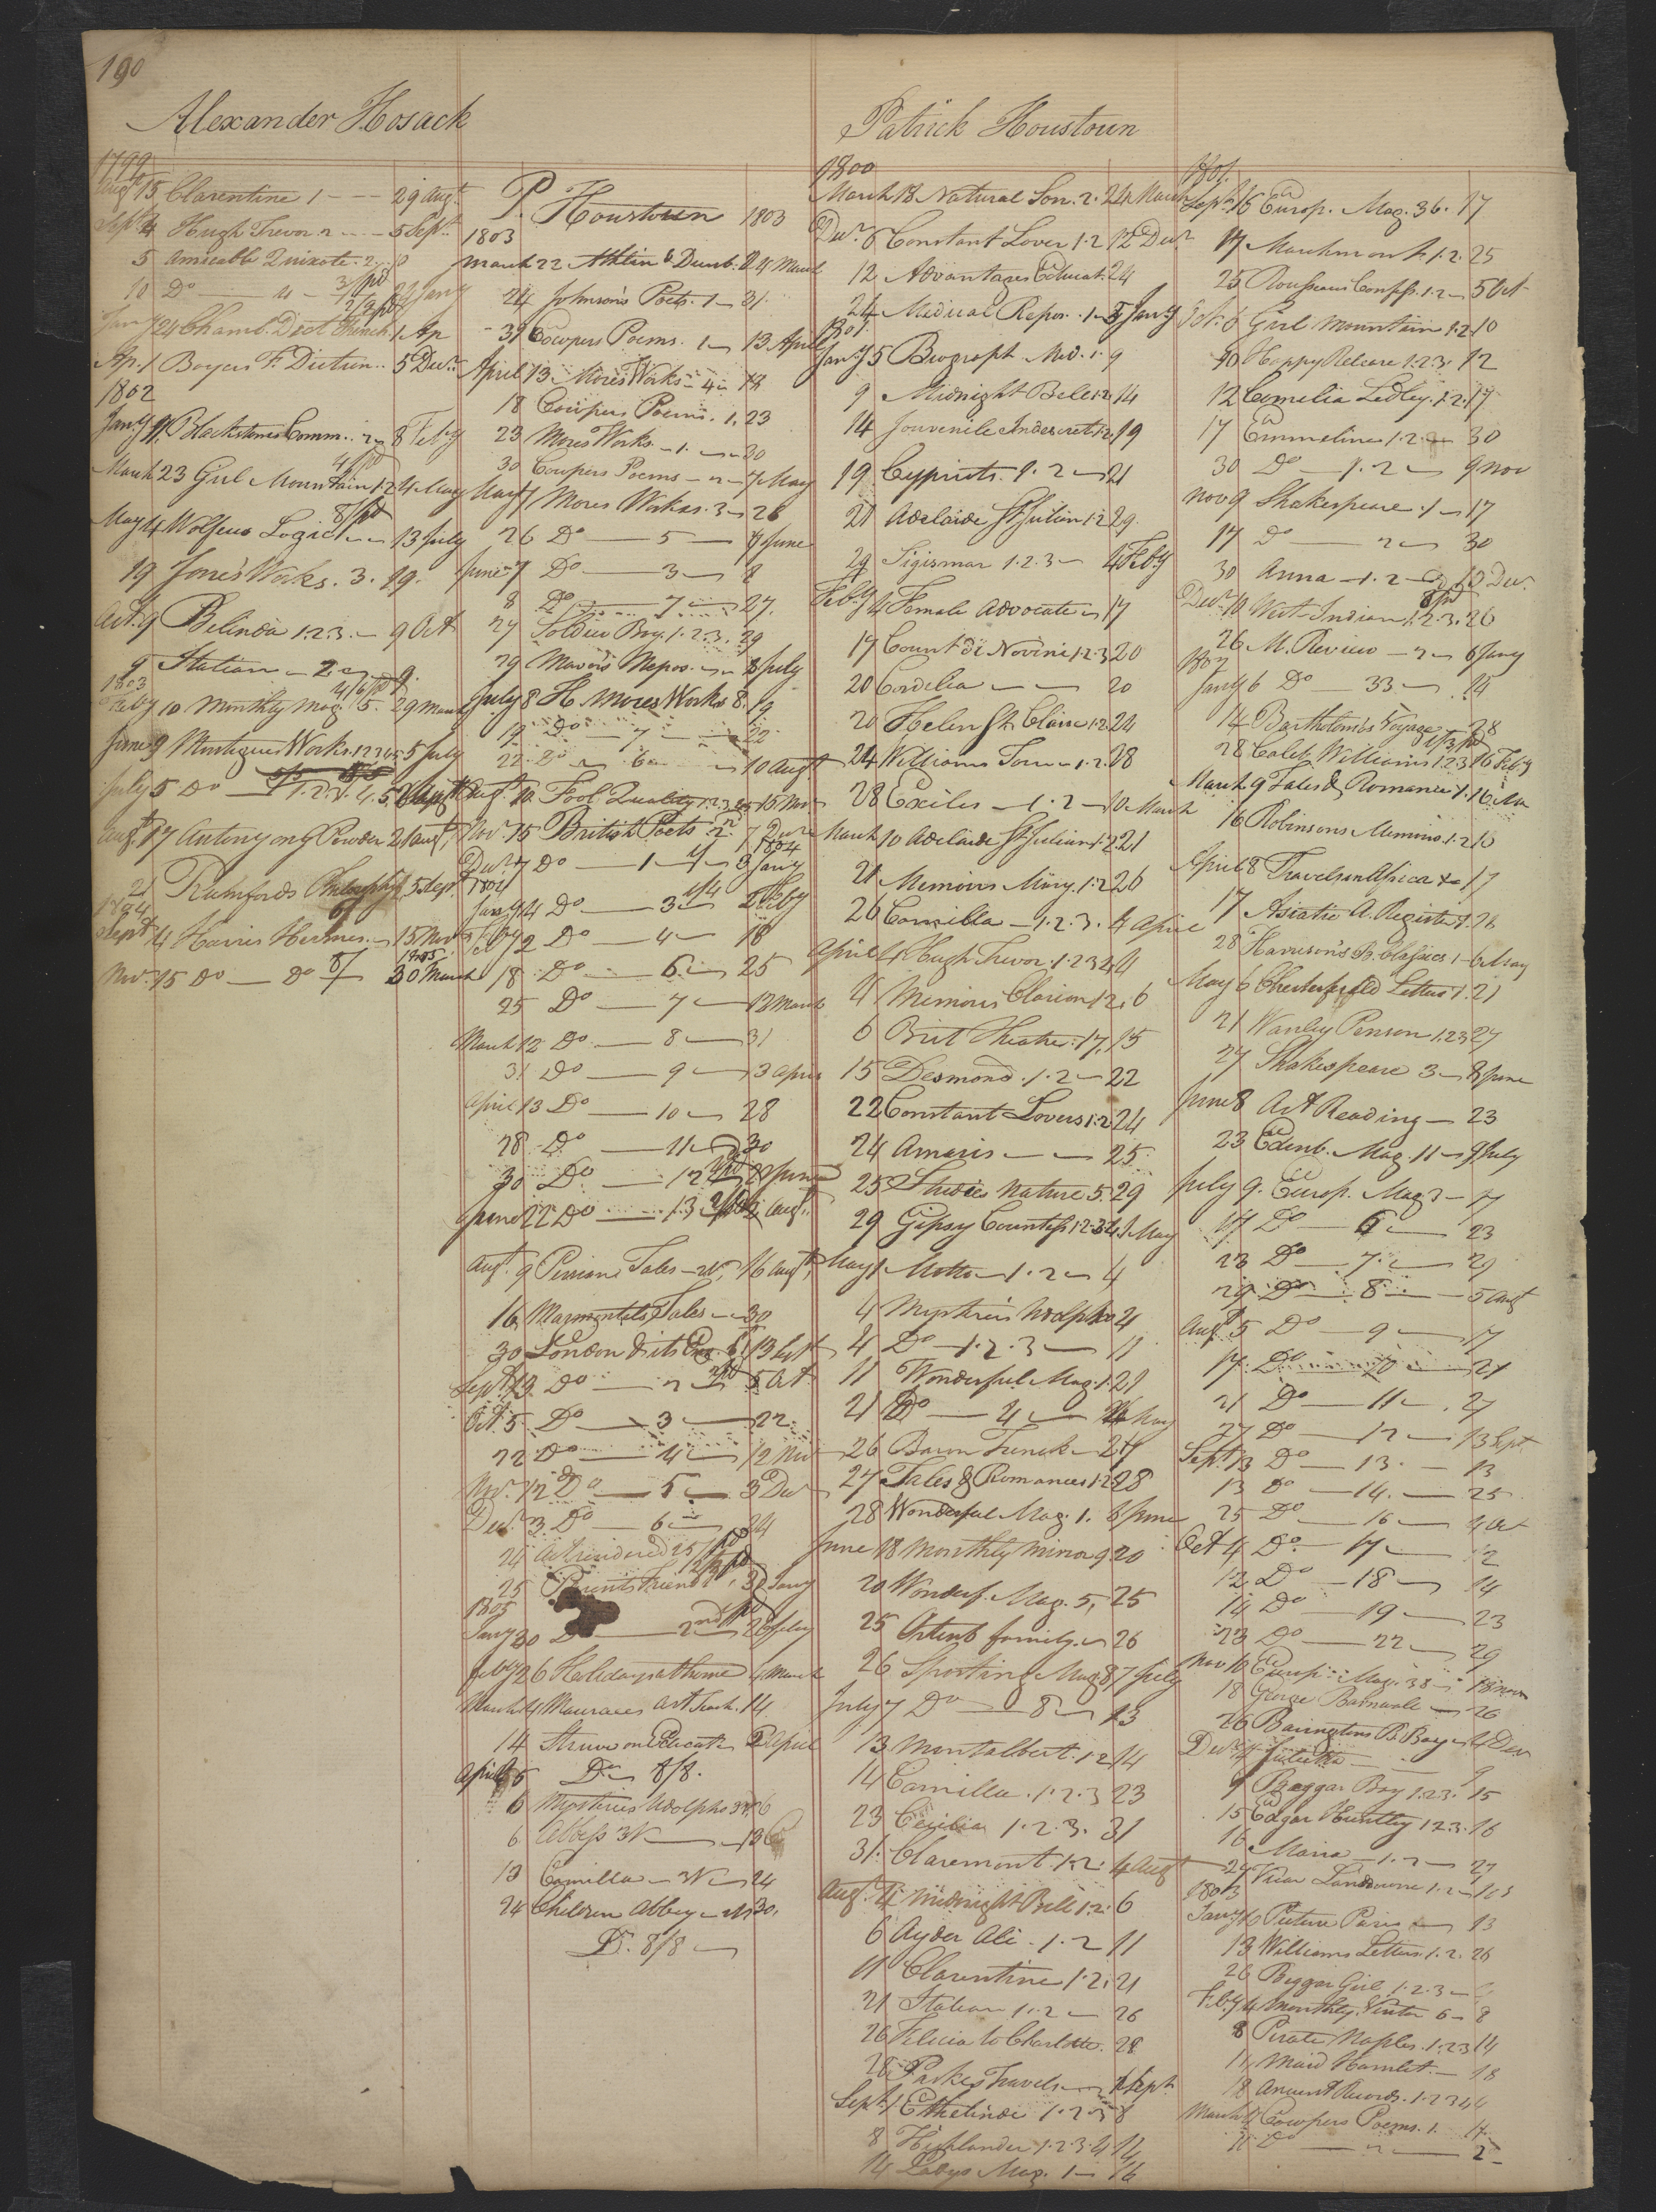 190
Alexander Hosack
1799
Augt 15 Clarentine 1 - - - 29 Augt
Sept 4 Hugh Trevor 2 - - - 5 Sept
5 Amicable Quixote. 2. 10
10 Do — 4 — 3/pd 24 Jany
Jany 24 Chamb. Dict. French. 1 Ap
Ap. 1 Boyers F. Diction.. 5 Decr
1802
Jany 9 Blackstones Comm.. 2 8 Feby
March 23 Girl Mountain 1.2 4/pd 4 May
May 4 Wolfius Logic 8/pd 13 July
19 Jones Works. 3. 19.
Oct. 9 Belinda 1.2.3. — 9 Oct
9 Italian — 2 — 9.
1803
Feby 10 Monthly Mag. 5. 4/6 pd 29 March
June 9 Montagues Works. 1.2.3.4.5 5 July
July 5 Do — 1.2.3.4.5
Augt 17 Antonyony Powder 21 Augt
21 Rumfords Philosophy 5 Sept
1804
Sept 4 Harris Hermes. — 15 Nov
Nov. 15 Do — Do 8/ 1805 30 March
P. Houstoun 1803
1803
March 22 Athlin & Dunb. 24 March
24 Johnson's Poets. 1 — 31.
31 Cowpers Poems. 1 — 13 April
April 13 Mores Works — 4 — 18
18 Cowpers Poems. 1. 23
23 Mores Works — 1. — 30
30 Cowpers Poems — 2 — 7 May
May 7 Mores Works. 3 — 26
26 Do — 5 — 7 June
June 7 Do — 3 — 8
8 Do — 7 — 27.
27 Soldier Boy. 1.2.3. 29
29 Mavors Repos. — 8 July
July 8 H. Mores Works 8. 19
19 Do — 7 — 22
22 Do — 6 — 10 Augt
Augt 10. Fool Quality 1.2.3.4.5 15 Nov
Nov. 15 British Poets 2. 7 Decr
Decr 7 Do — 1 — 1804 3 Jany
1804
Jany 14 Do — 3 — 2 Feby
Feby 2 Do — 4 — 18
18 Do — 6 — 25
25 Do — 7 — 12 March
March 12 Do — 8 — 31
31 Do — 9 — 13 April
April 13 Do — 10 — 28
28 Do — 11 — 30
30 Do — 12 — 22 June
June 22 Do — 13 — Augt
Augt 9 Persian Tales — 2v. 16 Augt
16 Marmontels Tales — 30
30 London & its Env. 13 Sept
Sept 13 Do — 2 — 5 Oct
Oct. 5 Do — 3 — 22
22 Do — 4 — 12 Nov
Nov. 12 Do — 5 — 3 Decr
Decr 3 Do — 6 — 24
24 Act rendered 25/pd
25 Parents Friend 1. 30 Jany
1805
Jany 30 Do — 2nd 26 Feby
Feby 26 Holidays at home 4 March
March 4 Maurices Art Teach. 14
14 Struve on Educatn 2 April
April 5 Do 8/8.
6 Mysteries Udolpho 3v. 6
6 Abbess 3v — 13
13 Camilla — 3v — 24
24 Children Abbey — 30.
Dr. 8/8 —
Patrick Houstoun
1800
March 18 Natural Son. 2. 24 March
Decr 6 Constant Lover 1.2 12 Decr
12 Advantages Educat. 24
24 Medical Repos. 1 — 5 Jany
1801.
Jany 5 Biograph. Med. 1. 9
9 Midnight Bell 1.2 14
14 Jouvenile Indescret. 1.2. 19
19 Cypriots. 1. 2 — 21
21 Adelaide St. Julian 1.2 29.
29 Sigismar 1.2.3 — 4 Feby
Feby 4 Female Advocate — 17
17 Count di Novini 1.2.3 20
20 Cordelia — — 20
20 Helen St. Claire 1.2 24
24 Williams Tour — 1.2. 28
28 Exiles — 1. 2 — 10 March
March 10 Adelaide St. Julian 1.2 21
21 Memoirs Mary. 1.2 26
26 Camilla — 1. 2. 3. 4 April
April 4 Hugh Trevor. 1.2 3.4 4
4 Memoirs Clarion 1.2. 6
6 Brit Theatre. 17. 15
15 Desmond. 1. 2 — 22
22 Constant Lovers 1.2 24
24 Amaris — — 25
25 Studies Nature 5. 29
29 Gipsy Countess 1.2.3.4 1 May
May 1 Motto — 1. 2 — 4
4 Mysteries Udolpho 4
4 Do — 1. 2. 3 — 11
11 Wonderful Mag. 1. 21
21 Do — 4 — 26 May
26 Baron Trenck — 27
27 Tales & Romances 1.2 28
28 Wonderful Mag. 1. 8 June
June 18 Monthly Mirror 9 20
20 Wonderf. Mag. 5, 25
25 Orient family. — 26
26 Sporting Mag 8 7 July
July 7 Do — 8 — 13
13 Montalbert. 1.2 14
14 Camilla. 1. 2. 3 23
23 Cecilia 1. 2. 3. 31
31. Claremont. 1.2. 4 Augt
Augt 4 Midnight Bell 1.2. 6
6 Ayder Ali. 1. 2 11
11 Clarentine 1.2. 21
21 Italian 1. 2 — 26
26 Felicia to Charlotte. 28
28 Parkes Travels — 1 Sept
Sept 1 Ethelinde 1. 2. 3 8
8 Highlander 1. 2. 3. 4 14
14 Ladys Mag. 1 — 16
1801.
Sept 16 Europ. Mag. 36. 17
17 Marchmont 1. 2. 25
25 Rousseaus Confss. 1. 2 — 5 Oct
Oct. 5 Girl Mountain 1.2 10
10 Happy Release 1.2.3. 12
12 Camelia Ledley. 1.2. 17
17 Emmeline 1. 2. — 30
30 Do — 1. 2 — 9 Nov
Nov 9 Shakespeare. 1 — 17
17 Do — 2 — 30
30 Anna — 1. 2 — 10 Decr
Decr 10 West Indian 1. 2. 3. 26
26 M. Review — 2 — 6 Jany
1802
Jany 6 Do — 33 — 14
14 Bartholom's Voyage — 28
28 Caleb Williams 1.2.3 16 Feby
March 9 Tales & Romance 1. 16 Mar
16 Robinsons Memoirs. 1.2 10
April 8 Travels in Africa — 17
17 Asiatic A. Register 1. 26
28 Harrison's B. Classics 1 — 6 May
May 6 Chesterfield Letters 1. 21
21 Wanley Penson 1.2.3 27
27 Shakespeare 3 — 8 June
June 8 Art Reading — 23
23 Edinb. Mag. 11 — 9 July
July 9. Europ. Mag. 3 — 17
17 Do — 6 — 23
23 Do — 7 — 29
29 Do — 8 — 5 Augt
Augt 5 Do — 9 — 17
17 Do — 10 — 21
21 Do — 11 — 27
27 Do — 12 — 13 Sept
Sept 13 Do — 13. — 13
13 Do — 14. — 25
25 Do — 16 — 4 Oct
Oct 4 Do — 17 — 12
12 Do — 18 — 14
14 Do — 19 — 23
23 Do — 22 — 29
Nov 10 Europ. Mag. 38 — 18 Nov
18 George Barnwale — 26
26 Barringtons B. Bay — 4 Decr
Decr 4 Julietta — 9
9 Beggar Boy 1.2.3. 15
15 Edgar Huntley 1.2.3. 16
16 Maria — 1. 2 — 27
27 Vicar Landsowne 1. 2 —
1803
Jany 10 Picture Paris — 13
13 Williams Letters. 1. 2. 26
26 Beggar Girl 1. 2. 3 —
Feby 4 Monthly Visitor 6 — 8
8 Pirate Naples. 1.2.3 14
14 Maid Hamlet. — 18
18 Ancient Records. 1. 2 3 4 4
March 4 Cowpers Poems. 1. 11
11 Do — 2 — 2